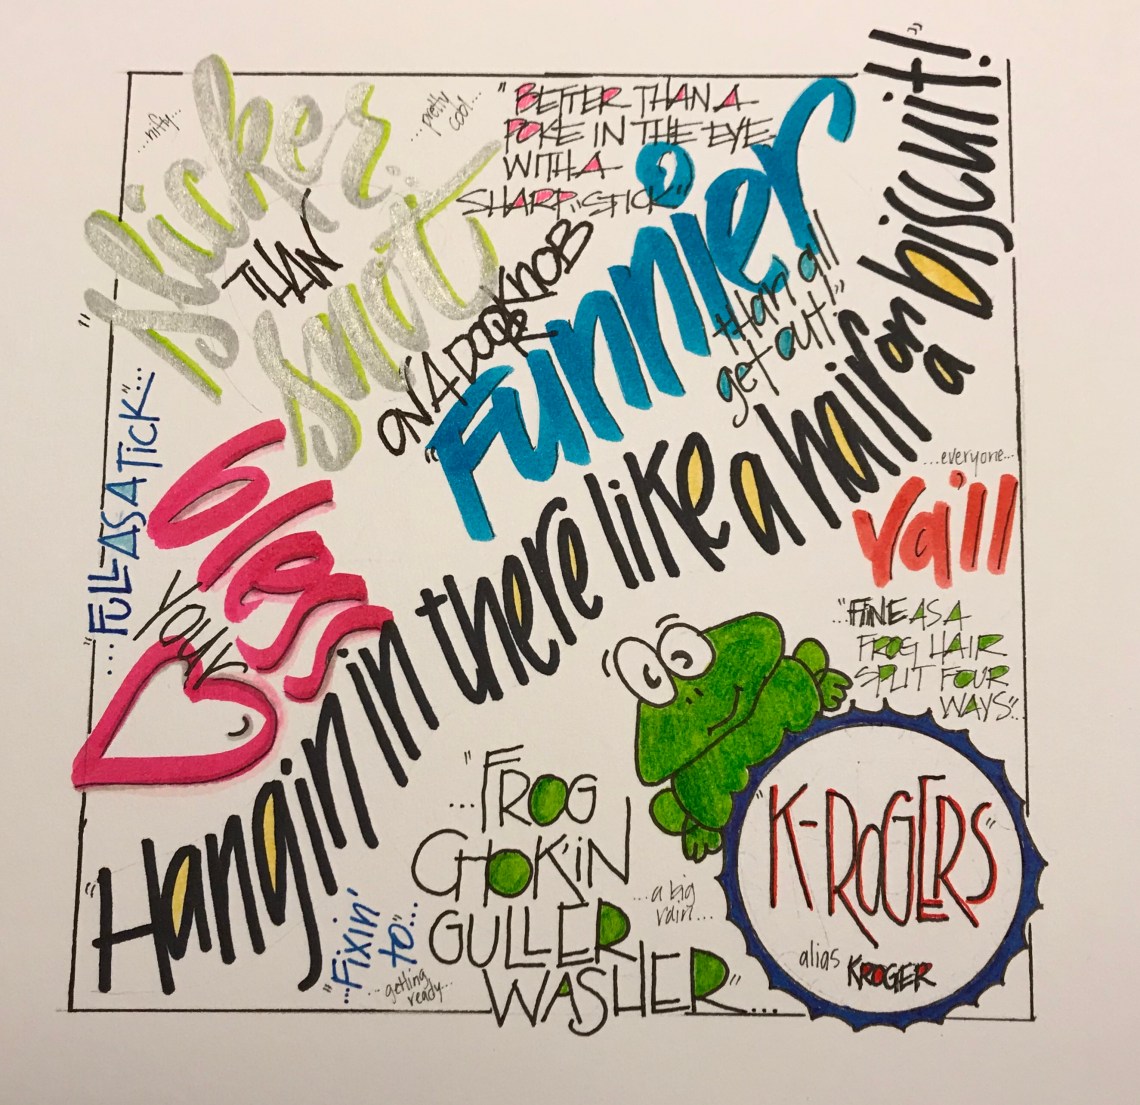 ...nifty...
"slicker
THAN
snot
ON A DOORKNOB
...pretty
cool...
"BETTER THAN A
POKE IN THE EYE
WITH A
SHARP STICK"
"Funnier
than all
get out!"
"Hangin in there like a hair on a biscuit!"
..."FULL AS A TICK"...
bless
your
...everyone...
ya'll
..."FINE AS A
FROG HAIR
SPLIT FOUR
WAYS"...
..."FROG
CHOK'IN
GULLER
WASHER"...
...a big
rain...
"K-ROGERS"
alias
KROGER
..."Fixin'
to"...
...getting
ready...